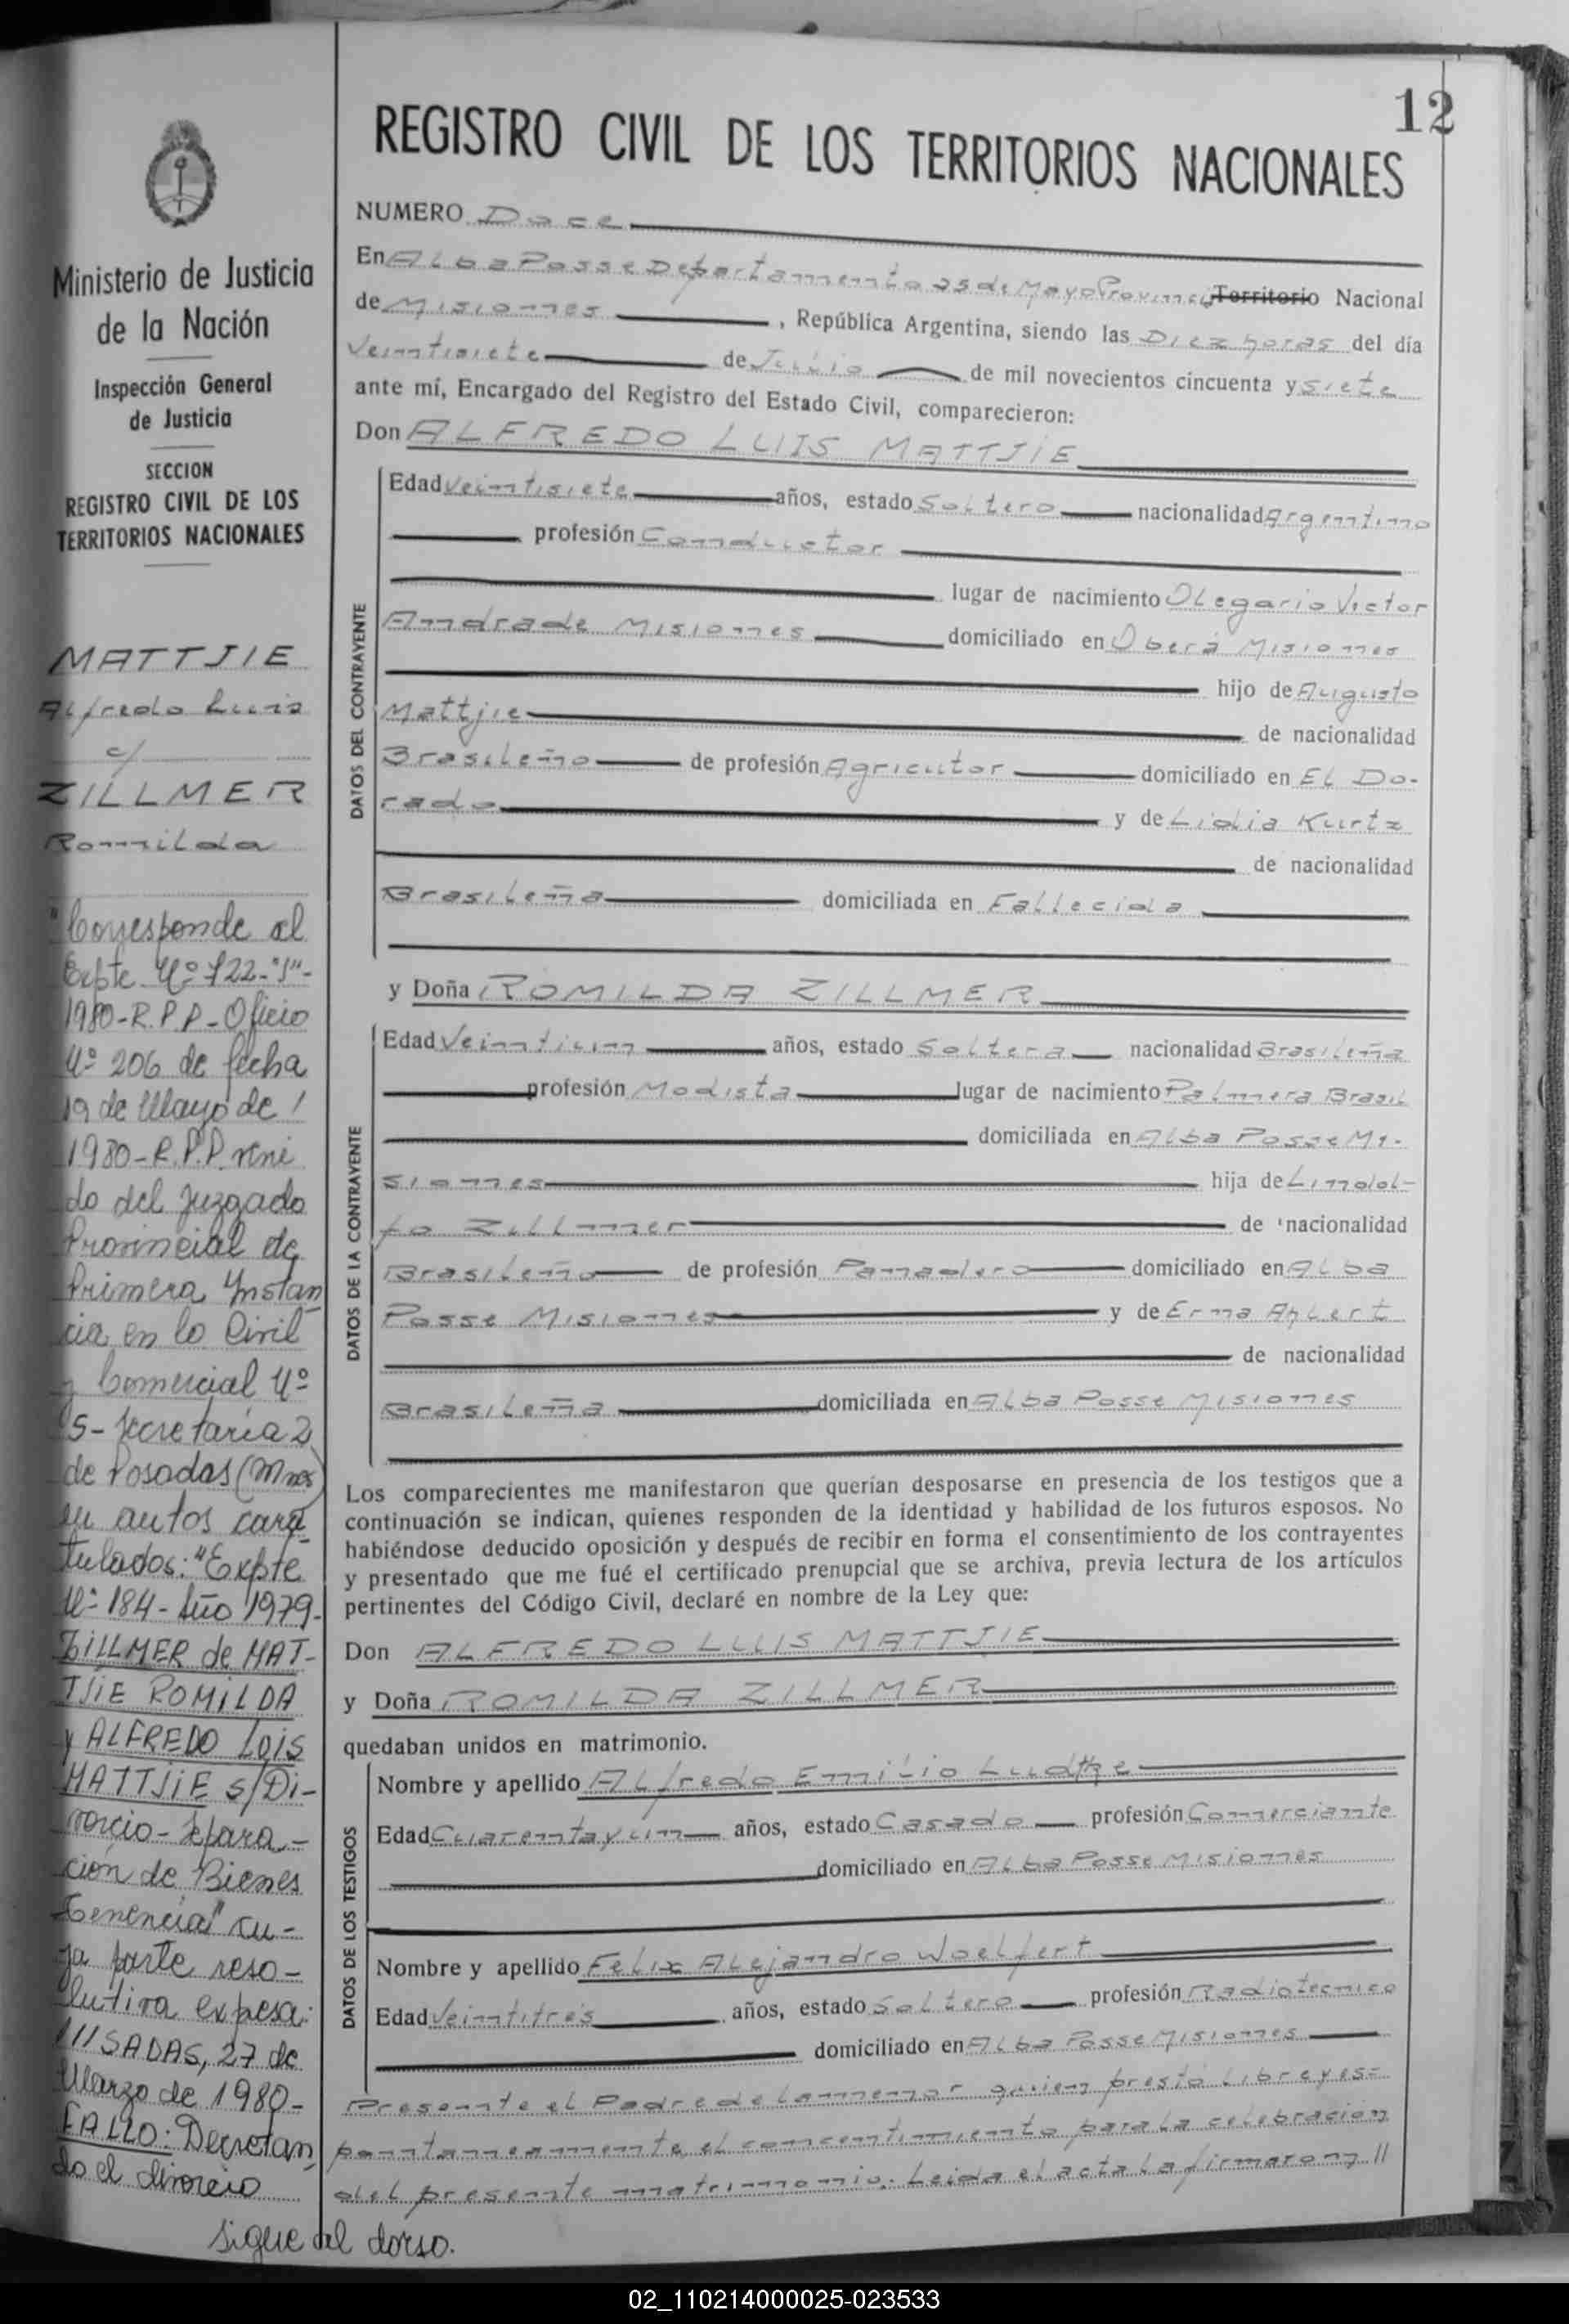 12
REGISTRO CIVIL DE LOS TERRITORIOS NACIONALES
NUMERO Doce
En Alba Posse Departamento 25 de Mayo Provincia Territorio Nacional
de Misiones, República Argentina, siendo las Diez horas del día
Veintisiete de Julio de mil novecientos cincuenta y siete
ante mí, Encargado del Registro del Estado Civil, comparecieron:
Don ALFREDO LUIS MATTJIE
DATOS DEL CONTRAYENTE
Edad Veintisiete años, estado Soltero nacionalidad Argentino
profesión Conductor
lugar de nacimiento Olegario Victor
Andrade Misiones domiciliado en Oberá Misiones
hijo de Augusto
Mattjie de nacionalidad
Brasileño de profesión Agricutor domiciliado en El Do-
rado y de Lidia Kurtz
de nacionalidad
Brasileña domiciliada en Fallecida
y Doña ROMILDA ZILLMER
DATOS DE LA CONTRAYENTE
Edad Veintiun años, estado Soltera nacionalidad Brasileña
profesión Modista lugar de nacimiento Palmera Brasil
domiciliada en Alba Posse Mi-
siones hija de Lindol-
fo Zillmer de nacionalidad
Brasileño de profesión Panadero domiciliado en Alba
Posse Misiones y de Erma Ahlert
de nacionalidad
Brasileña domiciliada en Alba Posse Misiones
Los comparecientes me manifestaron que querían desposarse en presencia de los testigos que a
continuación se indican, quienes responden de la identidad y habilidad de los futuros esposos. No
habiéndose deducido oposición y después de recibir en forma el consentimiento de los contrayentes
y presentado que me fué el certificado prenupcial que se archiva, previa lectura de los artículos
pertinentes del Código Civil, declaré en nombre de la Ley que:
Don ALFREDO LUIS MATTJIE
y Doña ROMILDA ZILLMER
quedaban unidos en matrimonio.
DATOS DE LOS TESTIGOS
Nombre y apellido Alfredo Emilio Ludtke
Edad Cuarenta y un años, estado Casado profesión Comerciante
domiciliado en Alba Posse Misiones
Nombre y apellido Felix Alejandro Woelfert
Edad Veintitrés años, estado Soltero profesión Radiotecnico
domiciliado en Alba Posse Misiones
Presente el Padre de la menor quien prestó libre y es-
pontaneamente el concentimiento para la celebración
del presente matrimonio. Leida el acta la firmaron //
Ministerio de Justicia
de la Nación
Inspección General
de Justicia
SECCION
REGISTRO CIVIL DE LOS
TERRITORIOS NACIONALES
MATTJIE
Alfredo Luis
c/
ZILLMER
Romilda
"Corresponde al
Expte. Nº 722-"J"-
1980-R.P.P-Oficio
Nº 206 de fecha
19 de Mayo de
1980-R.P.P. veni
do del Juzgado
Provincial de
Primera Instan
cia en lo Civil
y Comercial Nº
5-Secretaria 2
de Posadas (Mnes)
en autos cara-
tulados: "Expte
Nº 184-Año 1979-
ZILLMER de MAT-
TJIE ROMILDA
y ALFREDO LUIS
MATTJIE s/Di-
vorcio-Separa-
ción de Bienes
Tenencia" cu-
ya parte reso-
lutiva expesa:
///SADAS, 27 de
Marzo de 1980-
FALLO: Decretan
do el divorcio
Sigue al dorso.
02_110214000025-023533